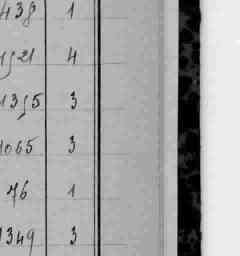 438 1
1921 4
1395 3
1065 3
76 1
1349 3